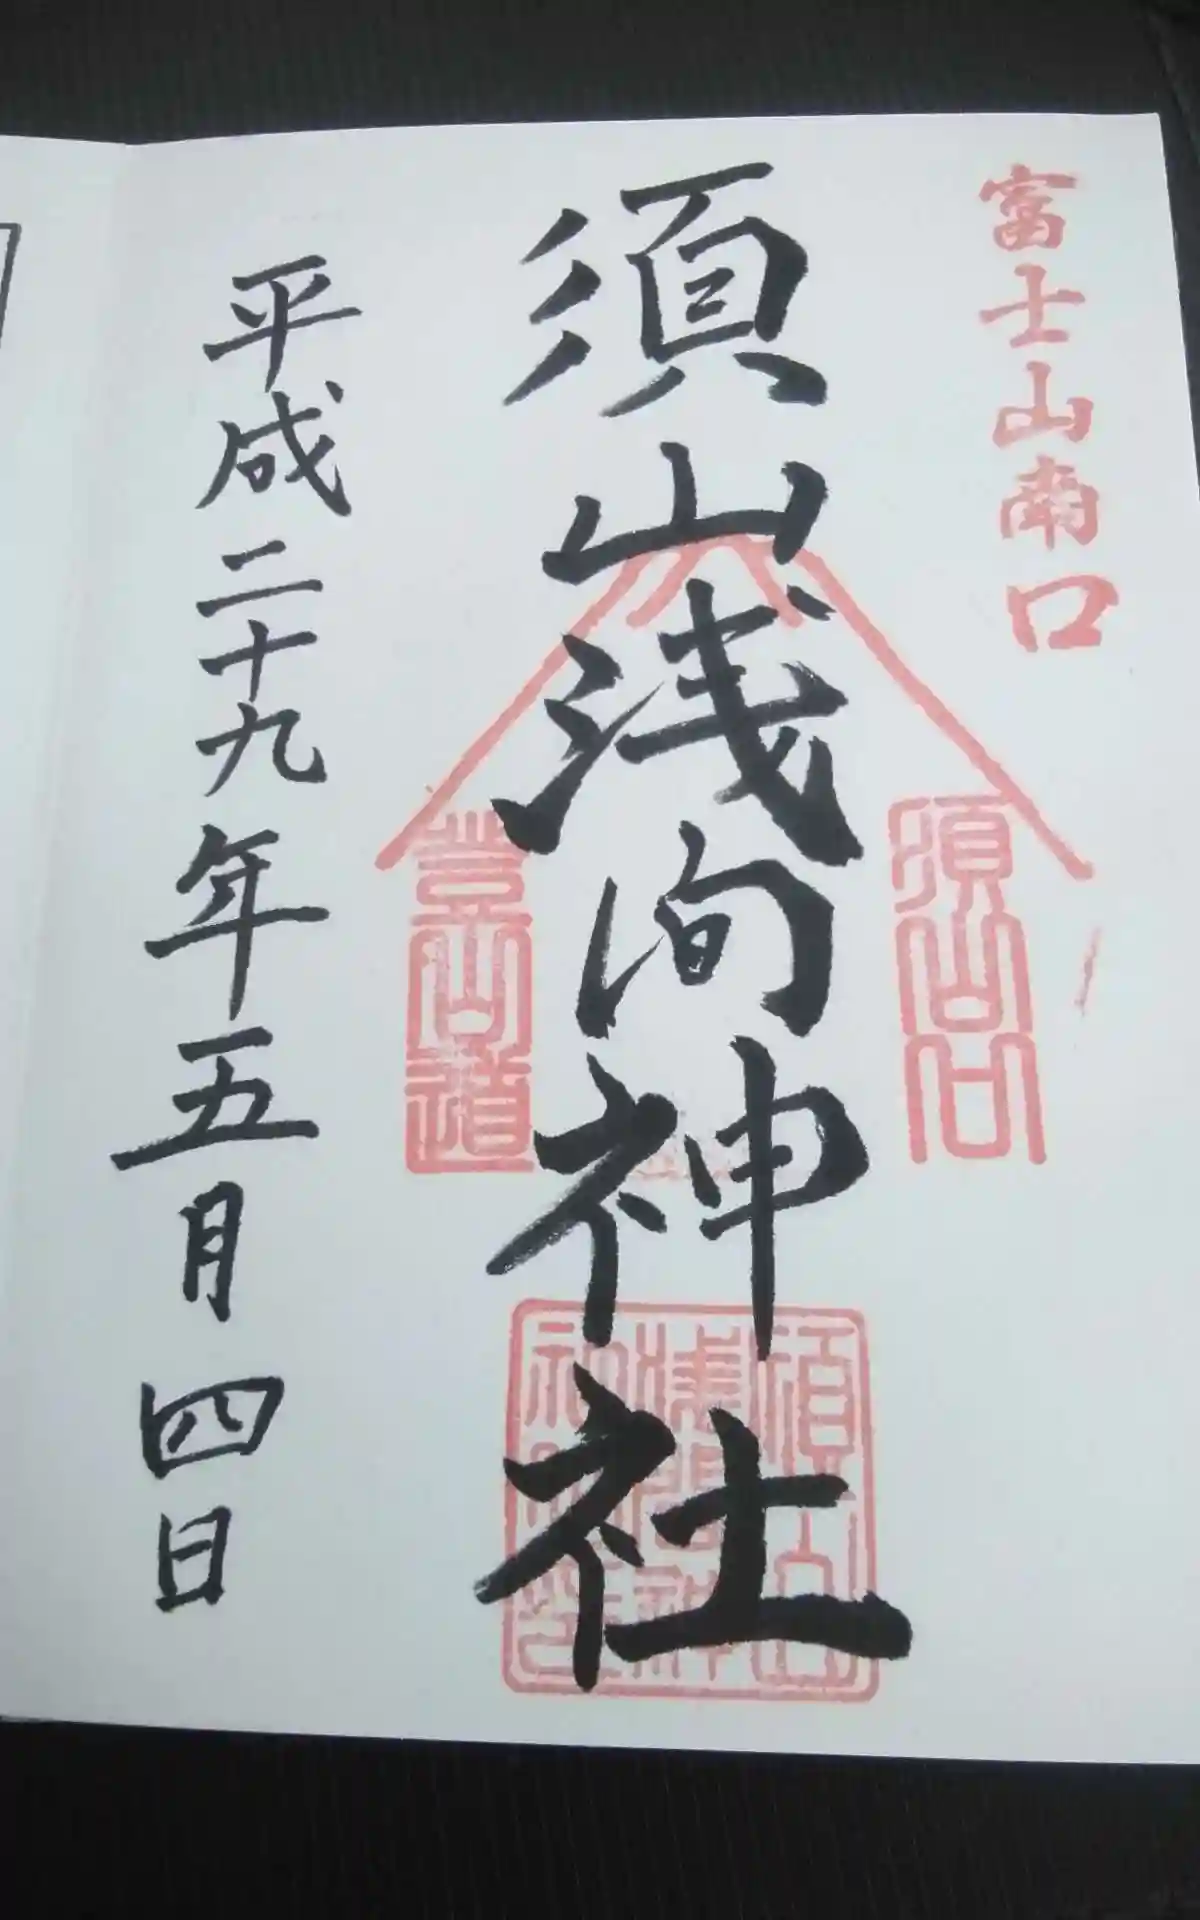 富士山南口
須山口
須山浅間神社
登山道
平成二十九年五月四日